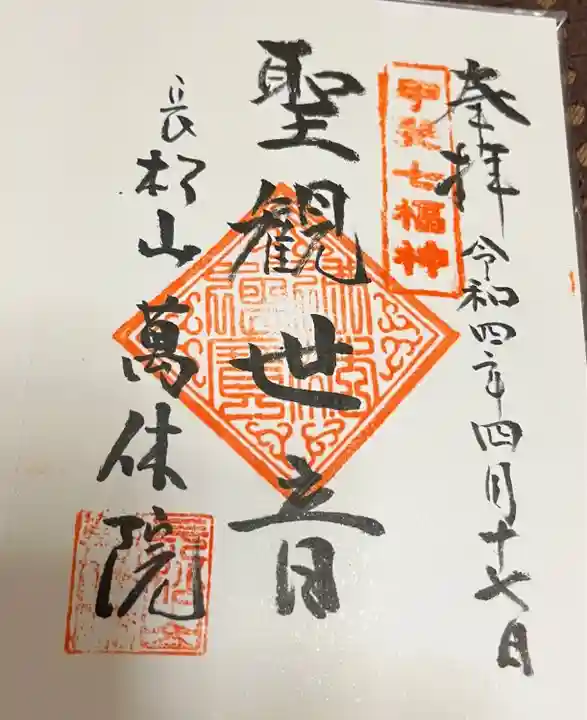 奉拝
令和四年四月十七日
甲斐七福神
聖観世音
長松山萬休院